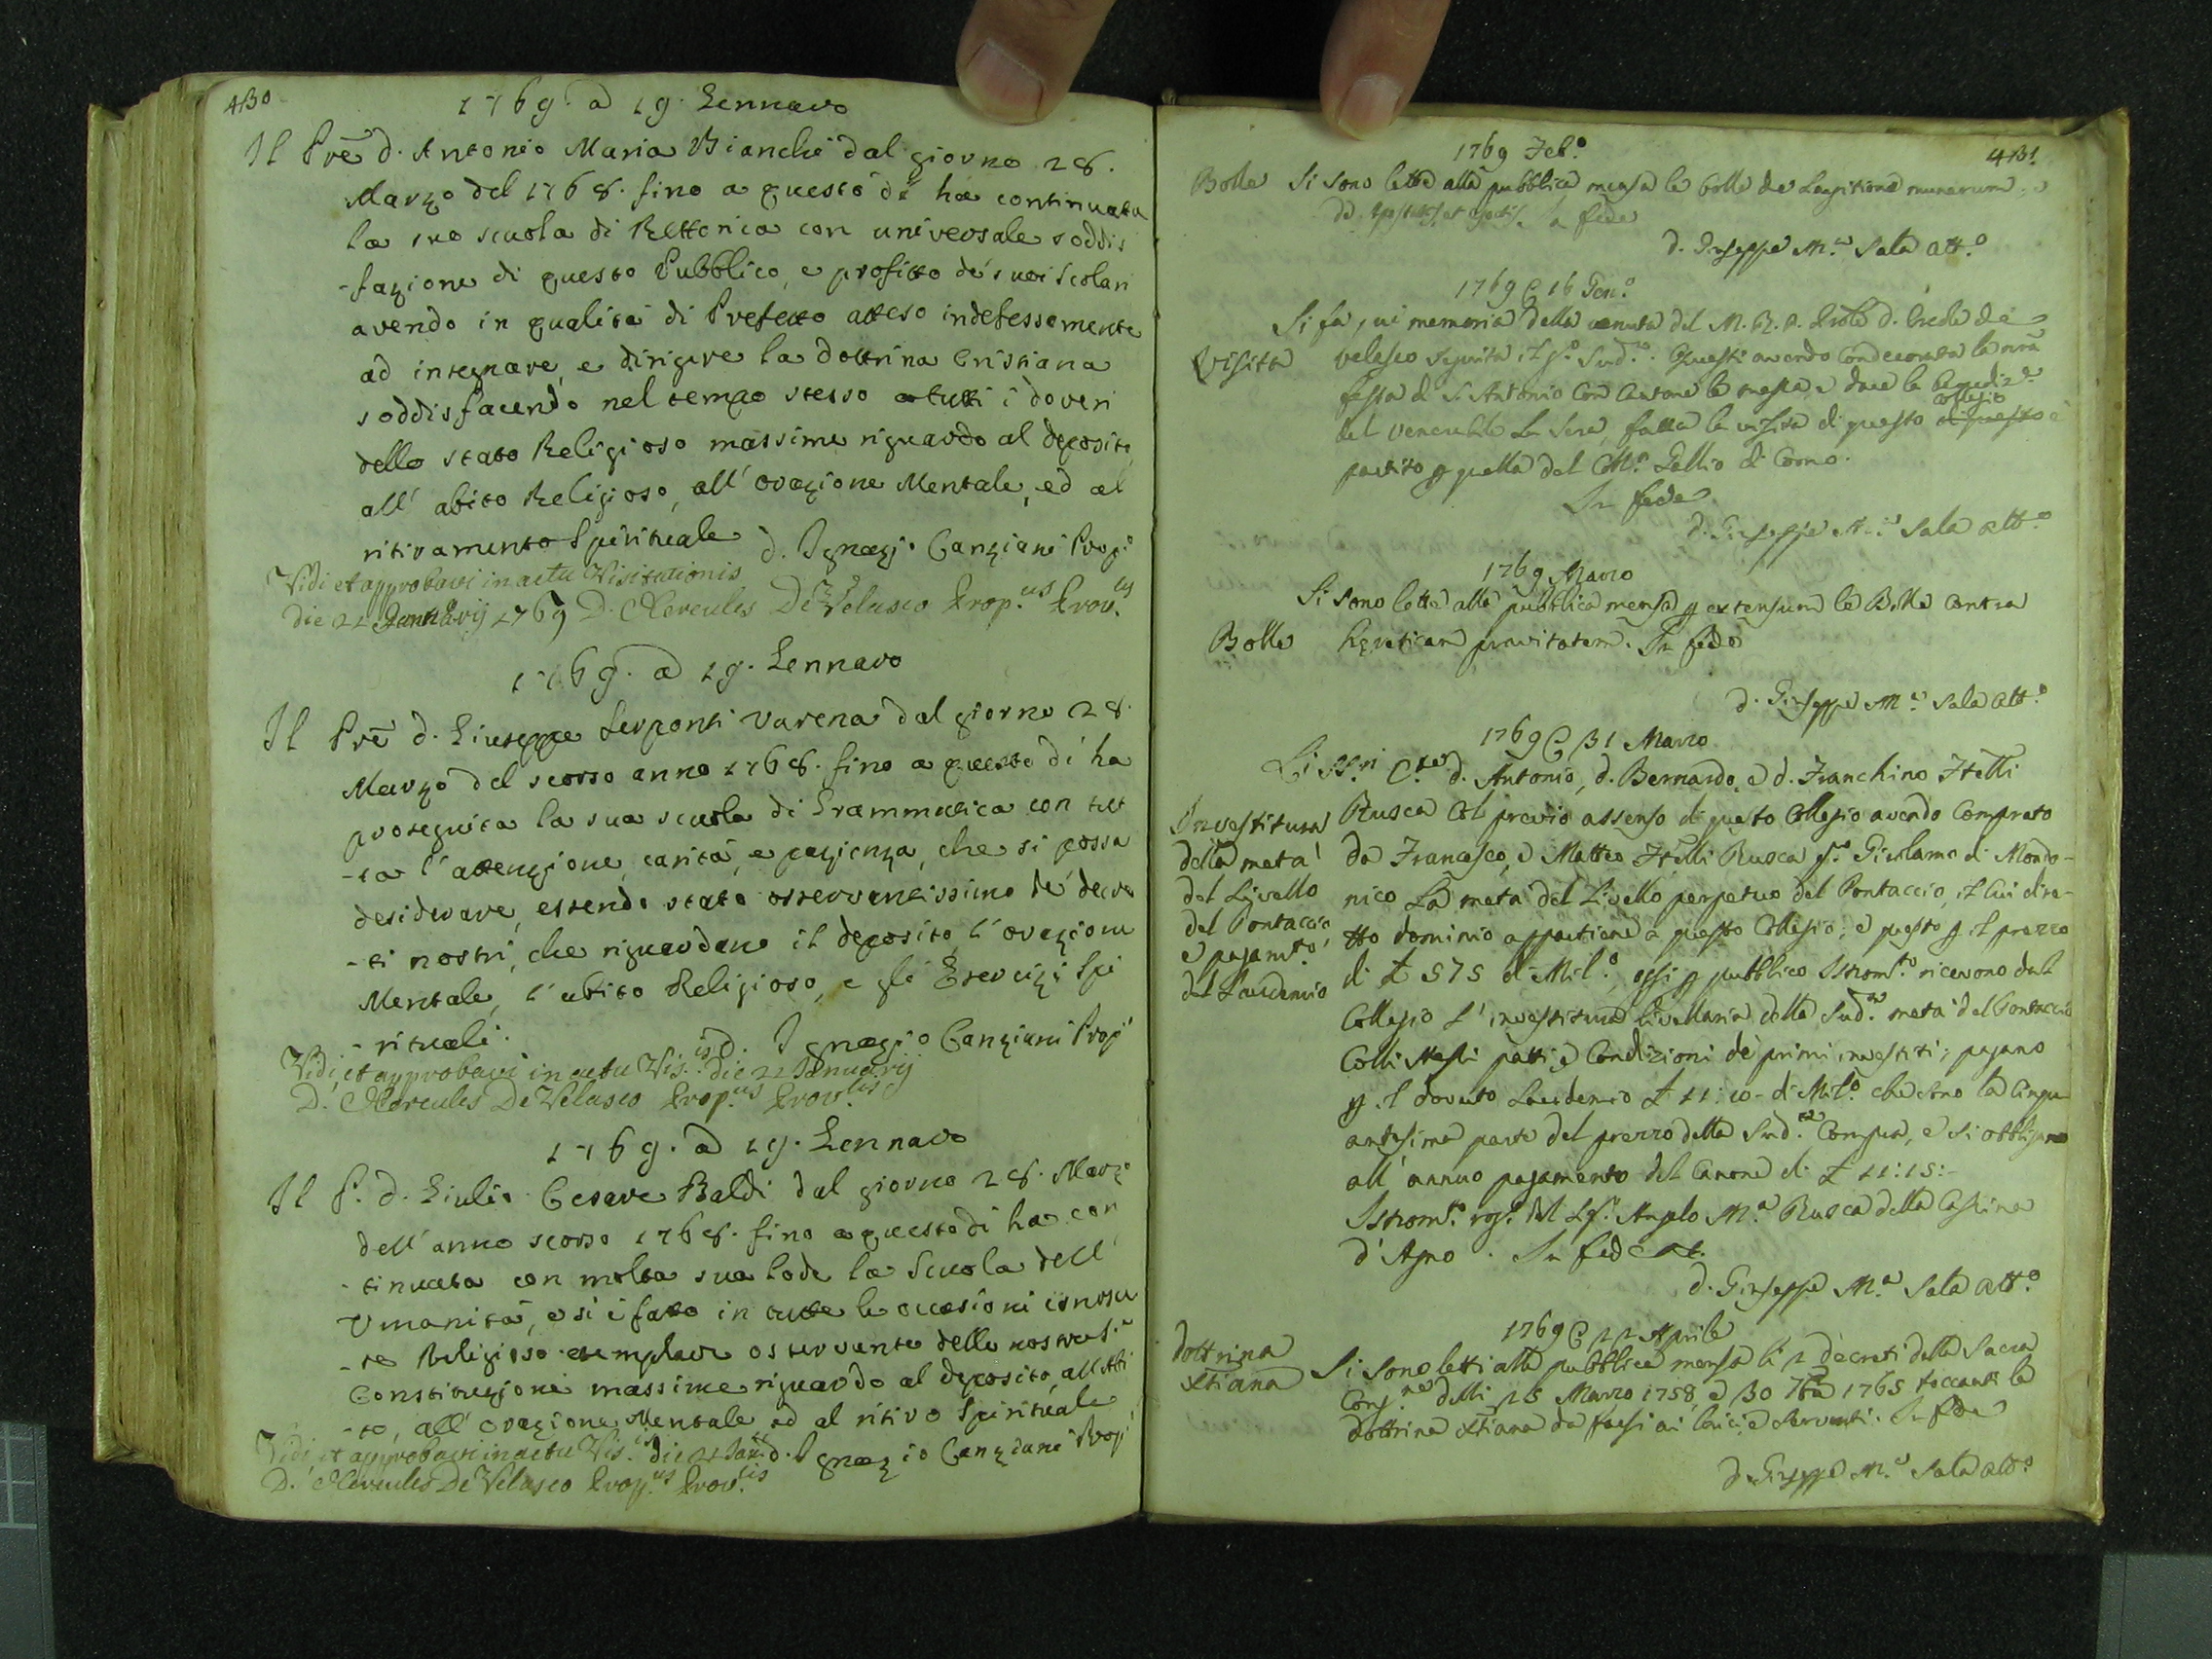 430
1769. a 19. Gennaro
Il Pre d. Antonio Maria Bianchi dal giorno 28.
Marzo del 1768. sino a questo dì ha continuata
la sua scuola di Rettorica con universale soddis
-fazione di questo Pubblico, e profitto de' suoi Scolari
avendo in qualità di Prefetto atteso indefessamente
ad insegnare, e dirigere la dottrina Cristiana
soddisfacendo nel tempo stesso a tutti i doveri
dello stato Religioso massime riguardo al deposito
all' abito Religioso, all' orazione Mentale, ed al
ritiramento Spirituale d. Ignazio Canziani Prop.o
Vidi et approbavi in actu Visitationis
die 21 Januarij 1769 D. Hercules De Velasco Prop.us Prov.lis
1769. a 19. Gennaro
Il Pre d. Giuseppe Serponti Varena dal giorno 28.
Marzo del scorso anno 1768. sino a questo dì ha
proseguita la sua scuola di Grammatica con tut
-ta l' attenzione, carità, e pazienza, che si possa
desiderare, essendo stato osservantissimo de' decre
-ti nostri, che riguardano il deposito, l' orazione
Mentale, l' abito Religioso, e gli Esercizj Spi
-rituali. d. Ignazio Canziani Prop.
Vidi, et approbavi in actu Vis.is die 21 Januarij
D. Hercules De Velasco Prop.us Prov.lis
1769. a 19. Gennaro
Il P. d. Giulio Cesare Baldi dal giorno 28. Marzo
dell' anno scorso 1768. sino a questo dì ha con
-tinuata con molta sua lode la Scuola dell'
Umanità, e si è fatto in tutte le occasioni conosce
-re Religioso esemplare osservante delle nostre S.e
Constituzioni massime riguardo al deposito, all' Abi
-to, all' orazione Mentale ed al ritiro Spirituale
Vidi, et approbavi in actu Vis.is die 21 Jan. d. Ignazio Canziani Prop.
D. Hercules De Velasco Prop.us Prov.lis
431.
1769 Feb.o
Bolle Si sono lette alla pubblica mensa le bolle de Largitione munerum, e
de Apostatis, et ejectis. In fede
d. Giuseppe M.a Sala att.o
1769 @ 16 Gen.o
Si fa qui memoria della venuta del M. R. P. Prole d. Ercole de
Visita Velasco seguita il g.o Sud.o. Questi avendo condecorata la nra
festa di S. Antonio con cantare la messa, e dare la benediz.e
del venerabile la sera, fatta la visita di questo collegio
partito p quella del Coll.o Gallio di Como.
In fede
d. Giuseppe M.a Sala att.o
1769 Marzo
Si sono lette alla pubblica mensa p extensum le Bolle contra
Bolle hereticam pravitatem. In fede
d. Giuseppe M.a Sala att.o
1769 @ 31 Marzo
Li SS.ri C.ti d. Antonio, d. Bernardo, e d. Franchino Ftelli
Investitura della metà del Livello del Pontaccio, e pagam.to del Laudemio
Rusca col previo assenso di questo Collegio avendo comprato
da Francesco, e Matteo Ftelli Rusca q.m Girolamo di Mondo-
nico la metà del Livello perpetuo del Pontaccio, il cui dire-
tto dominio appartiene a questo Collegio; e questo p il prezzo
di £ 575 di Mil.o, essi p pubblico Istrom.to ricevono dal
Collegio l' investitura livellaria della Sud.a metà del Pontaccio
colli stessi patti, e condizioni de' primi investiti; pagano
p il dovuto Laudemio £ 11:10- di Mil.o che sono la cinqu-
antesima parte del prezzo della Sud.a compra, e si obbligano
all' annuo pagamento del Canone di £ 11:15:-
Istrom.to rog.o dal Sig.r Angelo M.a Rusca della Cassina
d' Agno. In fede
d. Giuseppe M.a Sala att.o
1769 @ 22 Aprile
dottrina xtiana
Si sono letti alla pubblica mensa li 2 decreti della Sacra
Cong.ne delli 15 Marzo 1758, e 30 7bre 1765 toccanti la
dottrina xtiana da farsi ai laici, e serventi. In fede
d. Giuseppe M.a Sala att.o